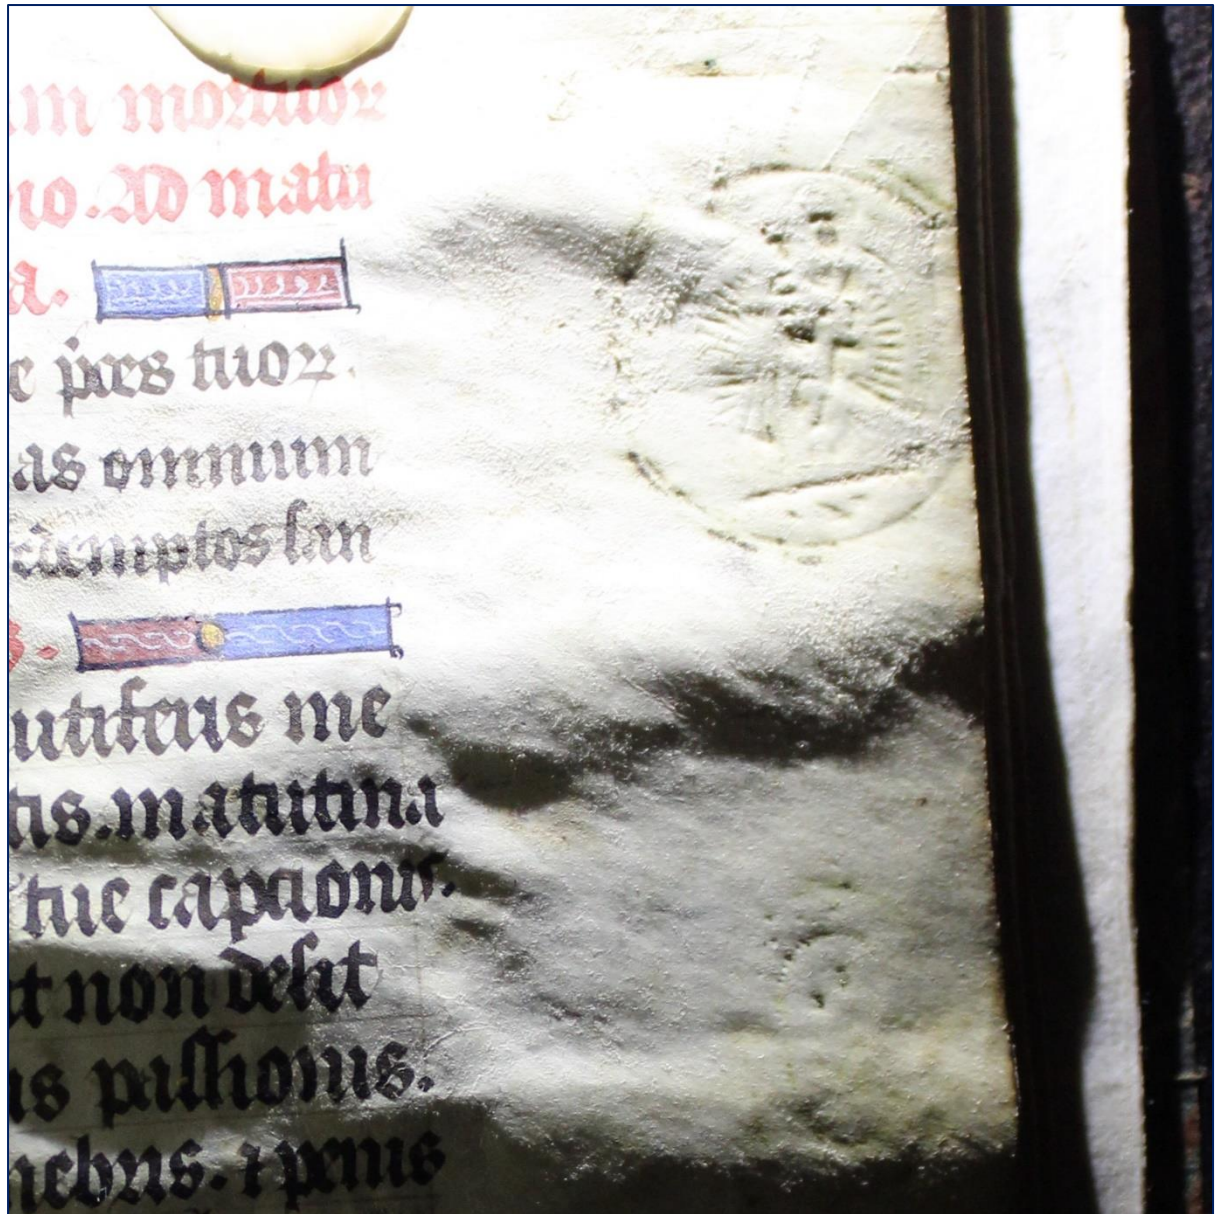 m mortuor
io. Ad matu
a.
e pres tuoꝝ.
as omnium
demptos san
s.
utiferis me
tis. matutina
tue capcionis.
t non desit
is passionis.
nebris. ⁊ penis